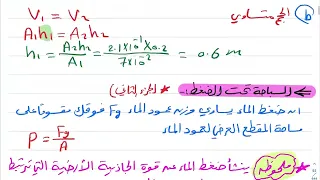 b) الحجم متساوي
V₁ = V₂
A₁h₁ = A₂h₂
h₁ = A₂h₂ / A₁ = 2.1×10⁻¹ × 0.2 / 7×10⁻² = 0.6 m
السباحة تحت الضغط: * الجزء الثاني
ان ضغط الماء يساوي وزن عمود الماء Fg فوقك مقسوما على
مساحة المقطع العرضي لعمود الماء
P = Fg / A
ملحوظة ينشأ ضغط الماء عن قوة الجاذبية الأرضية التي ترتبط